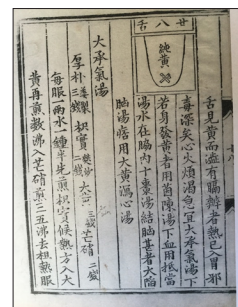 廿八舌
純黃
舌見黃而濇有隔瓣者熱已入胃邪
毒深矣心火煩渴急宜大承氣湯下
若身發黃者用茵陳湯下血用抵當
湯水在脇內十棗湯結胸甚者大陷
胸湯痞用大黃瀉心湯
大承氣湯
厚朴 枳實 大黃 三錢 芒硝 二錢
每服一兩水一鍾半先煎枳實候熱方入大
黃再煎數沸入芒硝煎三五沸去相熱服